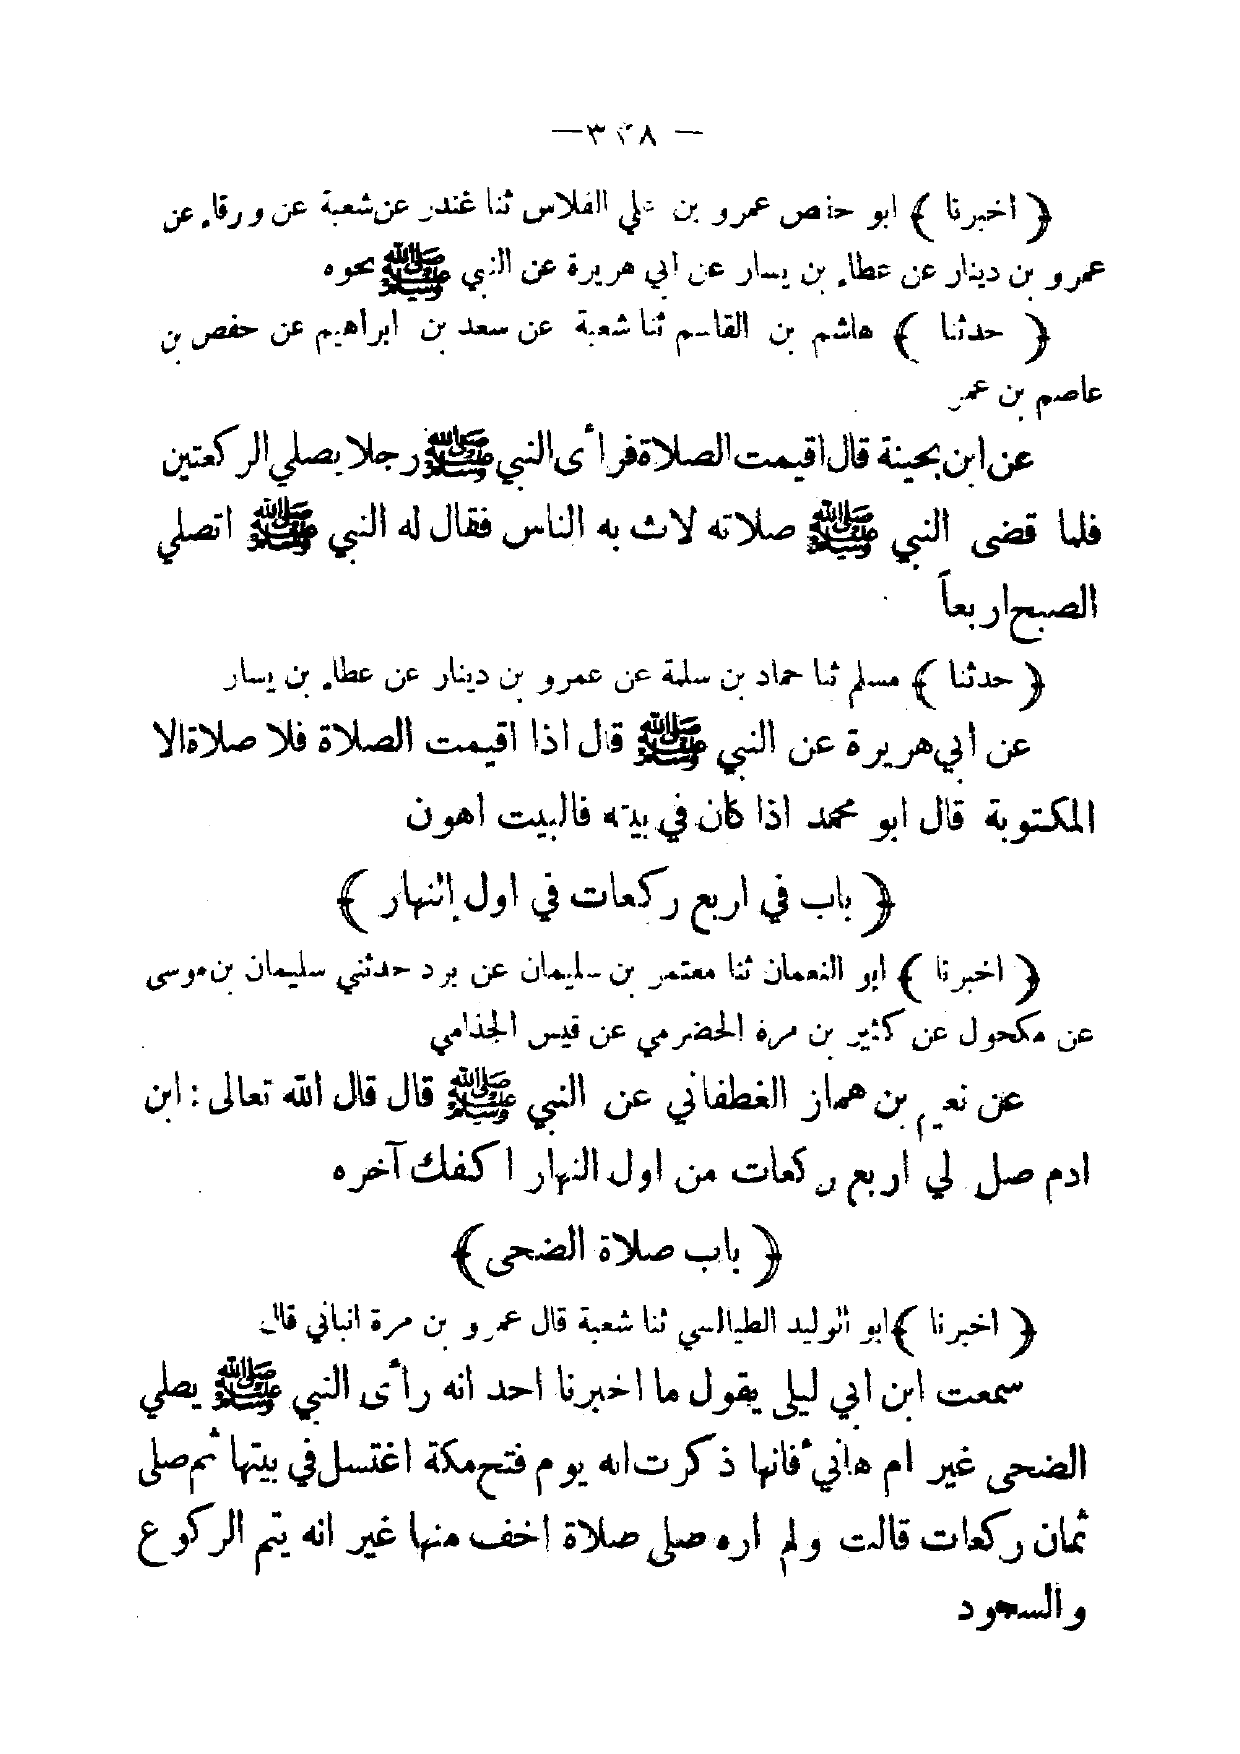 — ٣٣٨ —
﴿ اخبرنا ﴾ ابو حفص عمرو بن علي الفلاس ثنا غندر عن شعبة عن ورقاء عن
عمرو بن دينار عن عطاء بن يسار عن ابي هريرة عن النبي ﷺ نحوه
﴿ حدثنا ﴾ هاشم بن القاسم ثنا شعبة عن سعد بن ابراهيم عن حفص بن
عاصم بن عمر
عن ابن بحينة قال اقيمت الصلاة فرأى النبي ﷺ رجلا يصلي الركعتين
فلما قضى النبي ﷺ صلاته لاث به الناس فقال له النبي ﷺ اتصلي
الصبح اربعاً
﴿ حدثنا ﴾ مسلم ثنا حماد بن سلمة عن عمرو بن دينار عن عطاء بن يسار
عن ابي هريرة عن النبي ﷺ قال اذا اقيمت الصلاة فلا صلاة الا
المكتوبة قال ابو محمد اذا كان في بيته فالبيت اهون
﴿ باب في اربع ركعات في اول النهار ﴾
﴿ اخبرنا ﴾ ابو النعمان ثنا معتمر بن سليمان عن برد حدثني سليمان بن موسى
عن مكحول عن كثير بن مرة الحضرمي عن قيس الجذامي
عن نعيم بن هماز الغطفاني عن النبي ﷺ قال قال الله تعالى : ابن
ادم صل لي اربع ركعات من اول النهار اكفك آخره
﴿ باب صلاة الضحى ﴾
﴿ اخبرنا ﴾ ابو الوليد الطيالسي ثنا شعبة قال عمرو بن مرة انباني قال
سمعت ابن ابي ليلى يقول ما اخبرنا احد انه رأى النبي ﷺ يصلي
الضحى غير ام هاني ٔ فانها ذكرت انه يوم فتح مكة اغتسل في بيتها ثم صلى
ثمان ركعات قالت ولم اره صلى صلاة اخف منها غير انه يتم الركوع
والسجود